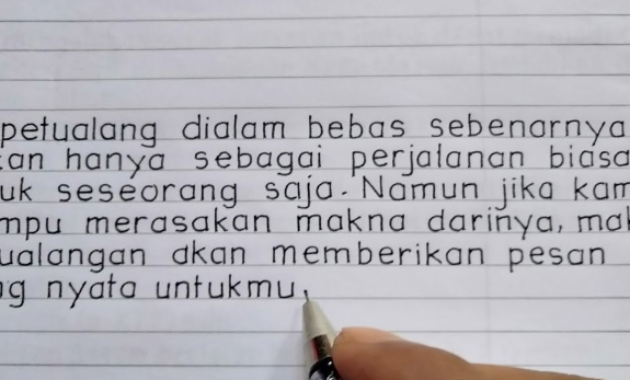 petualang dialam bebas sebenarnya
kan hanya sebagai perjalanan biasa
uk seseorang saja. Namun jika kam
mpu merasakan makna darinya, mak
ualangan akan memberikan pesan
ng nyata untukmu,